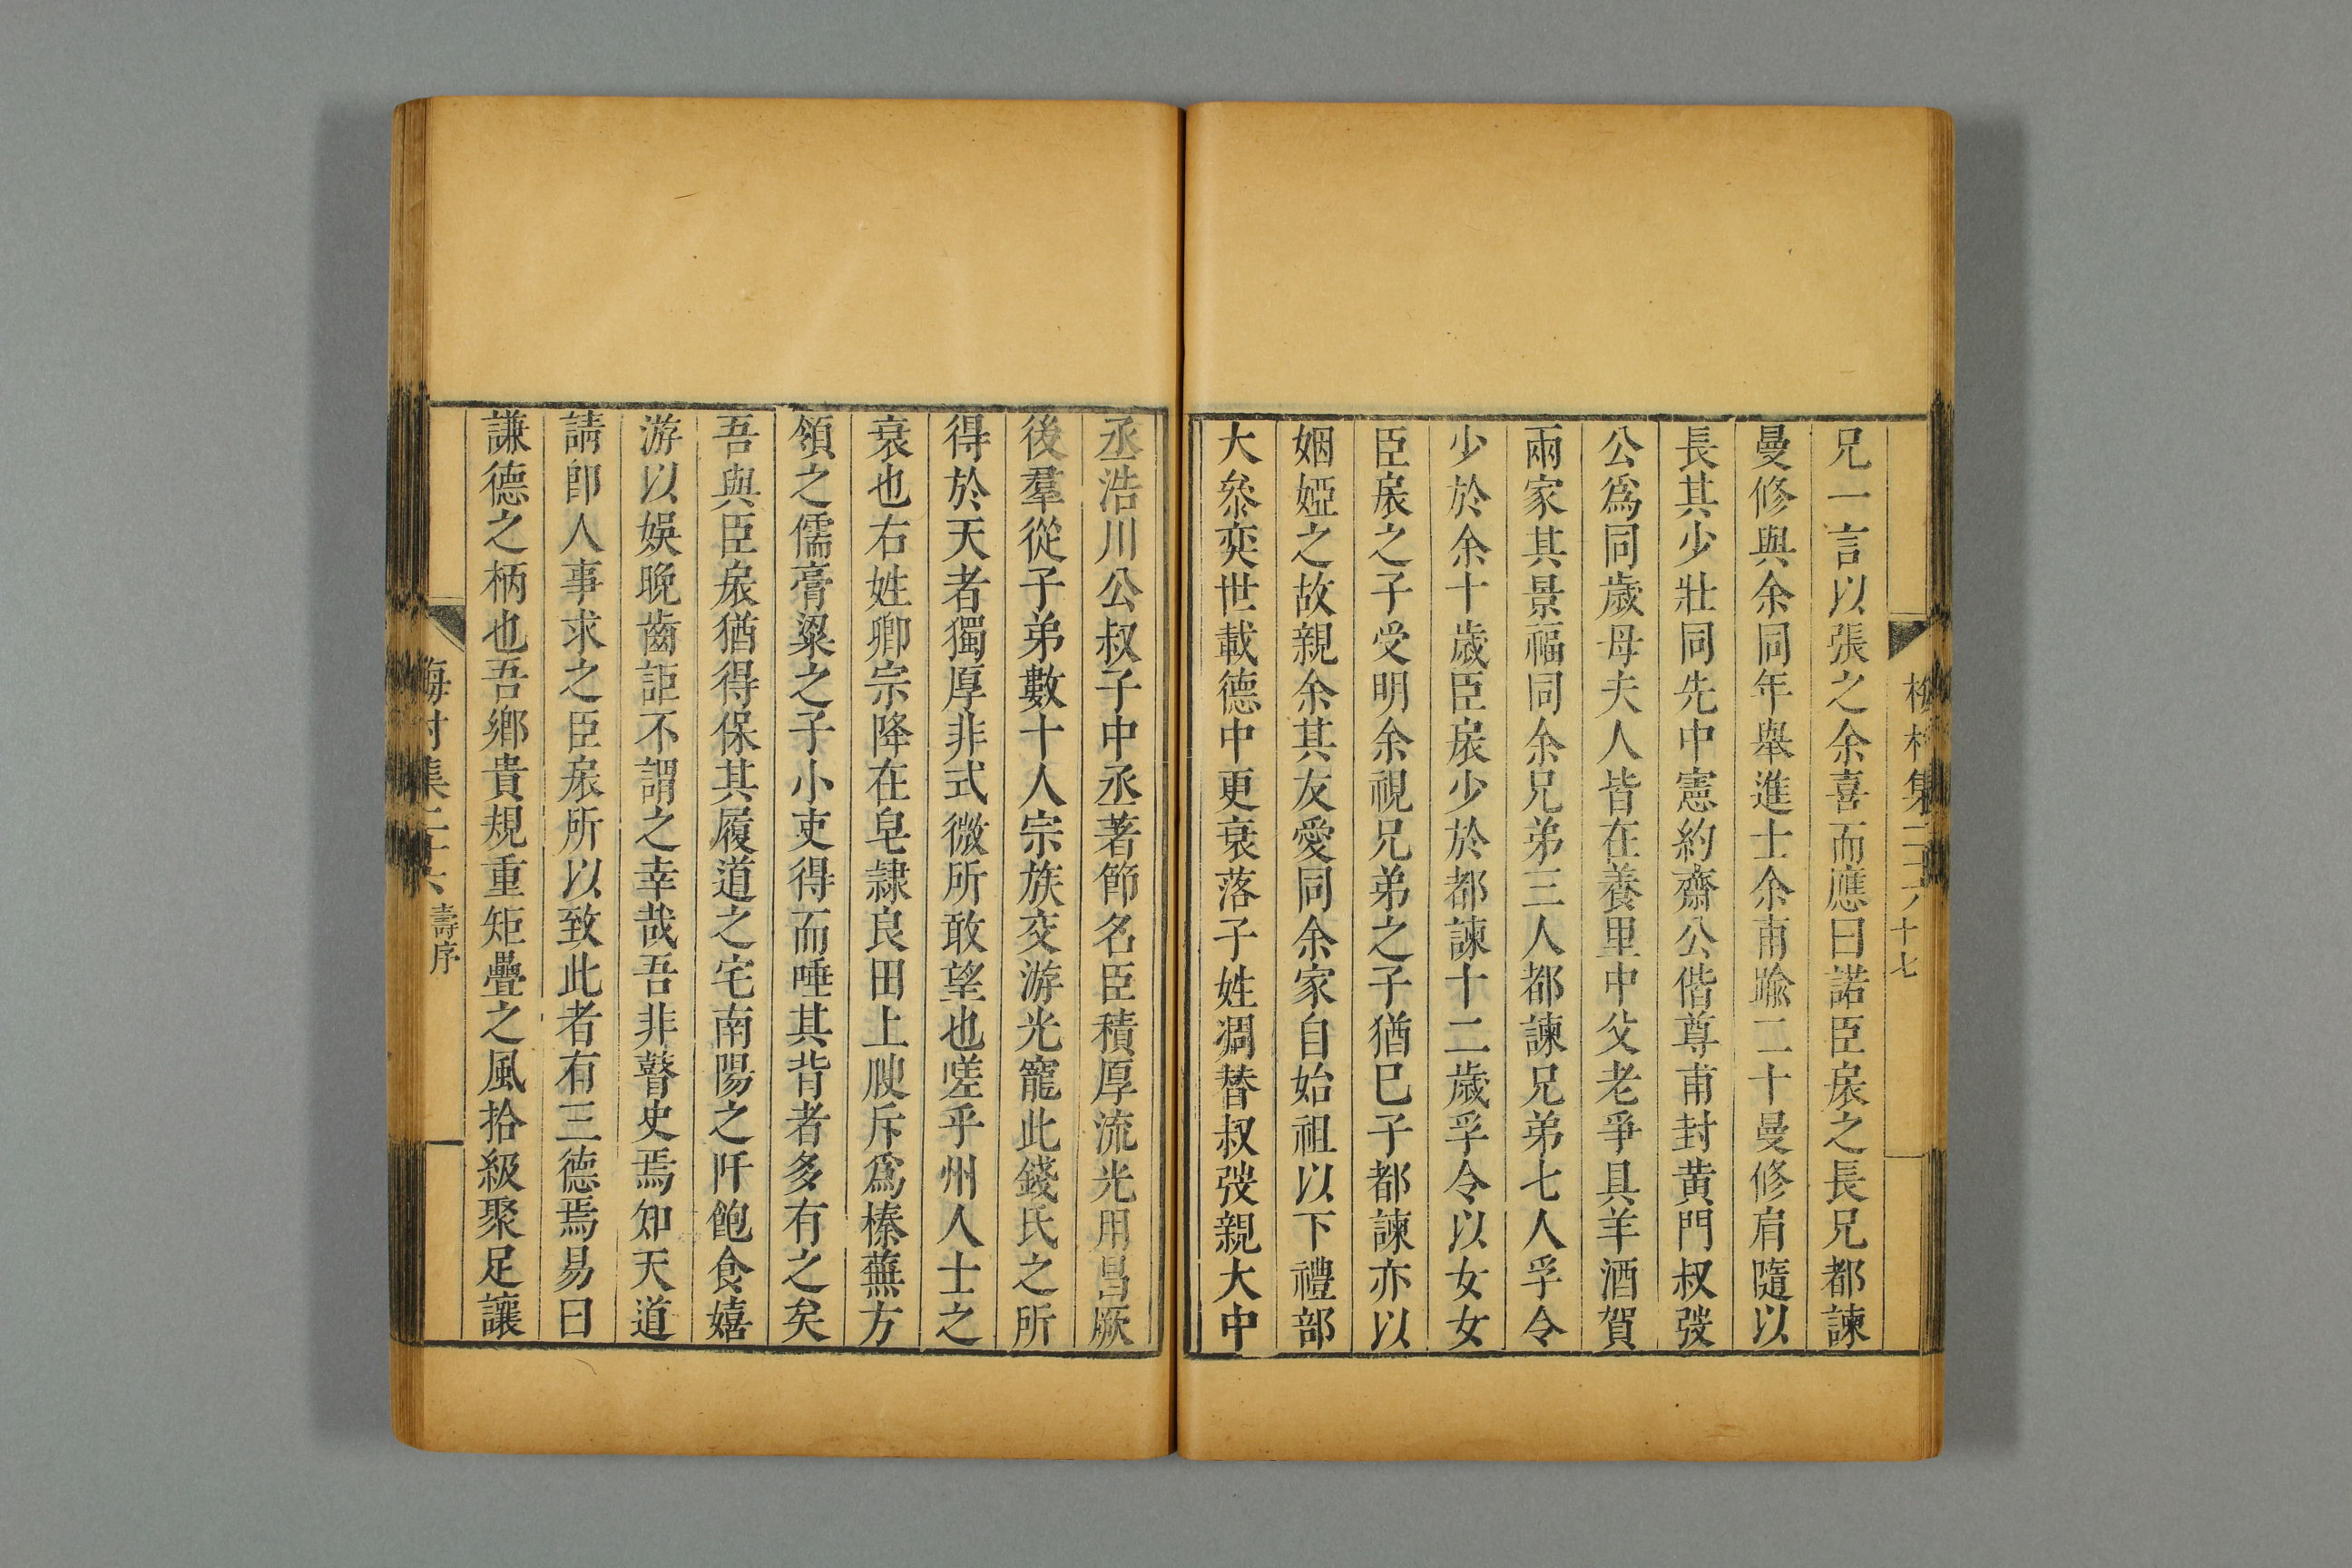 梅村集二十六
十七
兄一言以張之余喜而應曰諾臣扆之長兄都諫
曼修與余同年舉進士余甫踰二十曼修肩隨以
長其少壯同先中憲約齋公偕尊甫封黄門叔弢
公爲同歲母夫人皆在養里中父老爭具羊酒賀
兩家其景福同余兄弟三人都諫兄弟七人孚令
少於余十歲臣扆少於都諫十二歲孚令以女女
臣扆之子受明余視兄弟之子猶巳子都諫亦以
姻婭之故親余其友愛同余家自始祖以下禮部
大叅奕世載德中更衰落子姓凋替叔弢親大中
丞浩川公叔子中丞著節名臣積厚流光用昌厥
後羣從子弟數十人宗族交游光寵此錢氏之所
得於天者獨厚非式微所敢望也嗟乎州人士之
衰也右姓卿宗降在皂隷良田上腴斥爲榛蕪方
領之儒膏粱之子小吏得而唾其背者多有之矣
吾與臣扆猶得保其履道之宅南陽之阡飽食嬉
游以娛晚齒詎不謂之幸哉吾非瞽史焉知天道
請卽人事求之臣扆所以致此者有三德焉易曰
謙德之柄也吾鄉貴規重矩疊之風拾級聚足讓
梅村集二十六
壽序